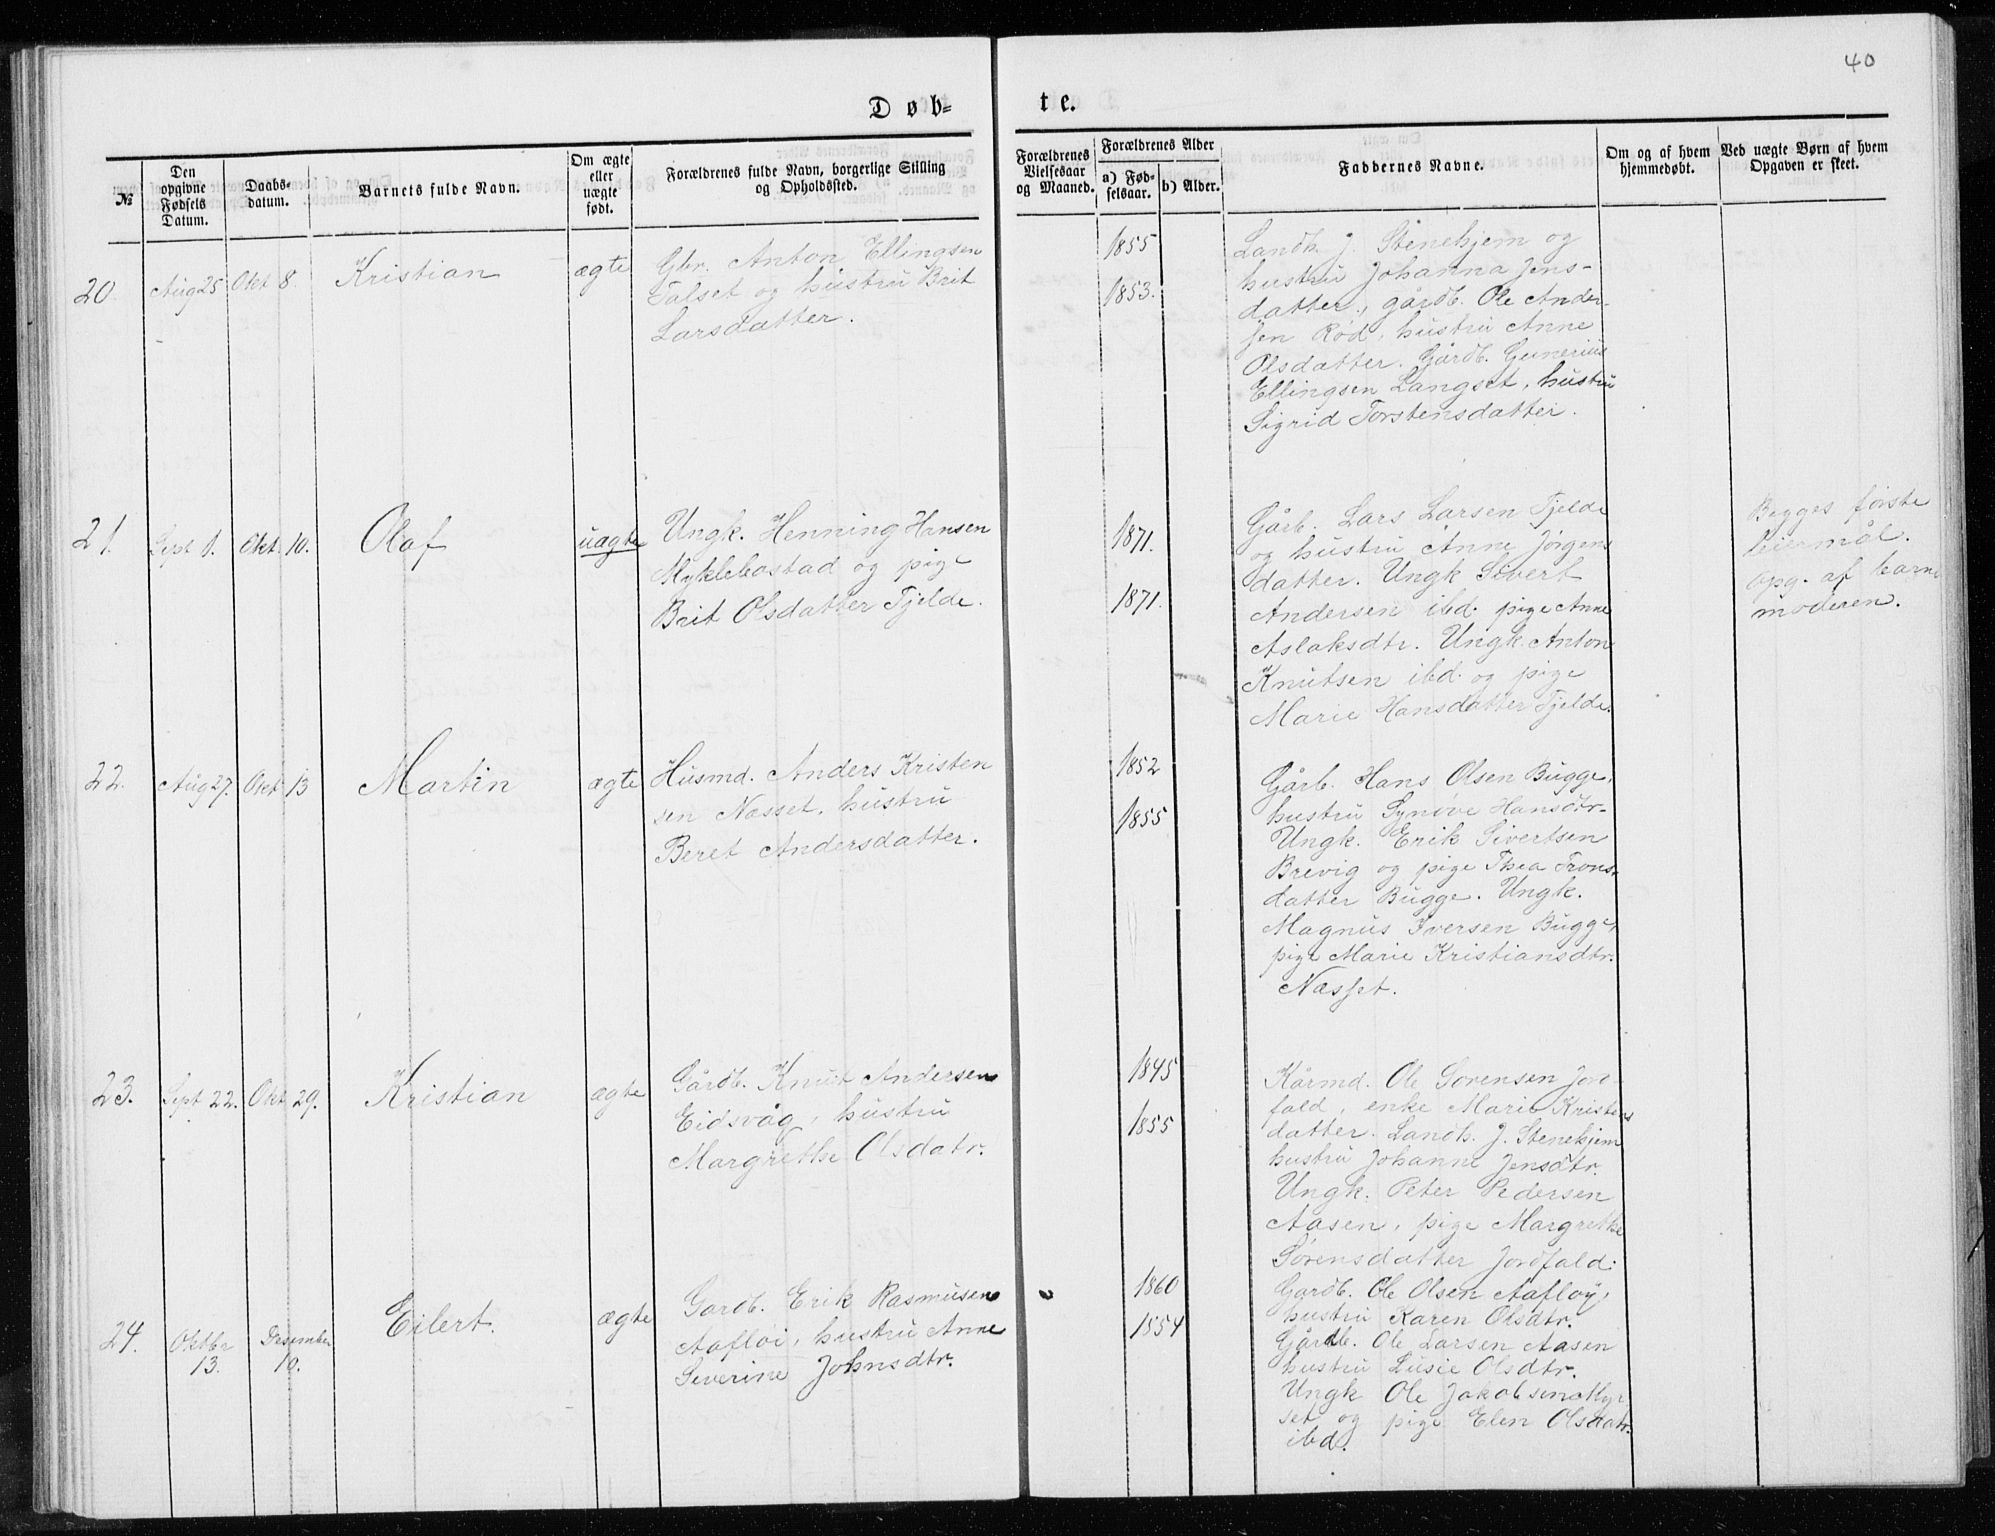 40
Døb-
te.
№
Den opgivne Fødsels Datum.
Daabs-datum.
Barnets fulde Navn.
Om ægte eller uægte født.
Forældrenes fulde Navn, borgerlige Stilling og Opholdssted.
Forældrenes Vielsesaar og Maaned.
Forældrenes Alder
a) Fødselsaar.
b) Alder.
Faddernes Navne.
Om og af hvem hjemmedøbt.
Ved uægte Børn af hvem Opgaven er skeet.
20.
Aug 25
Okt 8.
Kristian
ægte
Gbr. Anton Ellingsen
Talset og hustru Brit
Larsdatter.
1855
1853.
Landh. J. Stenehjem og
hustru Johanna Jens-
datter, gårdb. Ole Ander-
sen Rød, hustru Anne
Olsdatter. Gårdb. Gunerius
Ellingsen Langset, hustru
Sigrid Torstensdatter.
21.
Sept 1.
Okt. 10.
Olaf
uægte
Ungk. Henning Hansen
Myklebostad og pige
Brit Olsdatter Tjelde.
1871.
1871.
Gårb. Lars Larsen Tjelde
og hustru Anne Jørgens
datter. Ungk Sivert
Andersen ibd. pige Anne
Aslaksdtr. Ungk. Anton
Knutsen ibd. og pige
Marie Hansdatter Tjelde.
Begges første
leiermål.
Opg. af barne
moderen.
22.
Aug 27.
Okt 13
Martin
ægte
Husmd. Anders Kristen
sen Næsset, hustru
Beret Andersdatter.
1852
1855
Gårb. Hans Olsen Bugge,
hustru Synøve Hansdtr-
Ungk. Erik Sivertsen
Brevig og pige Thea Trons-
datter Bugge. Ungk.
Magnus Iversen Bugge,
pige Marie Kristiansdtr.
Næsset.
23.
Sept 22.
Okt 29.
Kristian
ægte
Gårdb. Knut Andersen
Eidsvåg, hustru
Margrethe Olsdatr.
1845
1855
Kårmd. Ole Sørensen Jord
fald, enke Marie Kristens
datter. Landh. J. Stenehjem
hustru Johanne Jensdtr.
Ungk. Peter Pedersen
Aasen, pige Margrethe
Sørensdatter Jordfald.
24.
Oktbr
13.
Desember
10.
Eilert.
ægte
Gardb. Erik Rasmusen
Aafløi, hustru Anne
Severine Johnsdtr.
1860
1854
Gardb. Ole Olsen Aafløy,
hustru Karen Olsdtr.
Gårdb. Ole Larsen Aasen
hustru Lusie Olsdtr.
Ungk Ole Jakobsen Myr
set og pige Elen Olsdatr.
ibd.